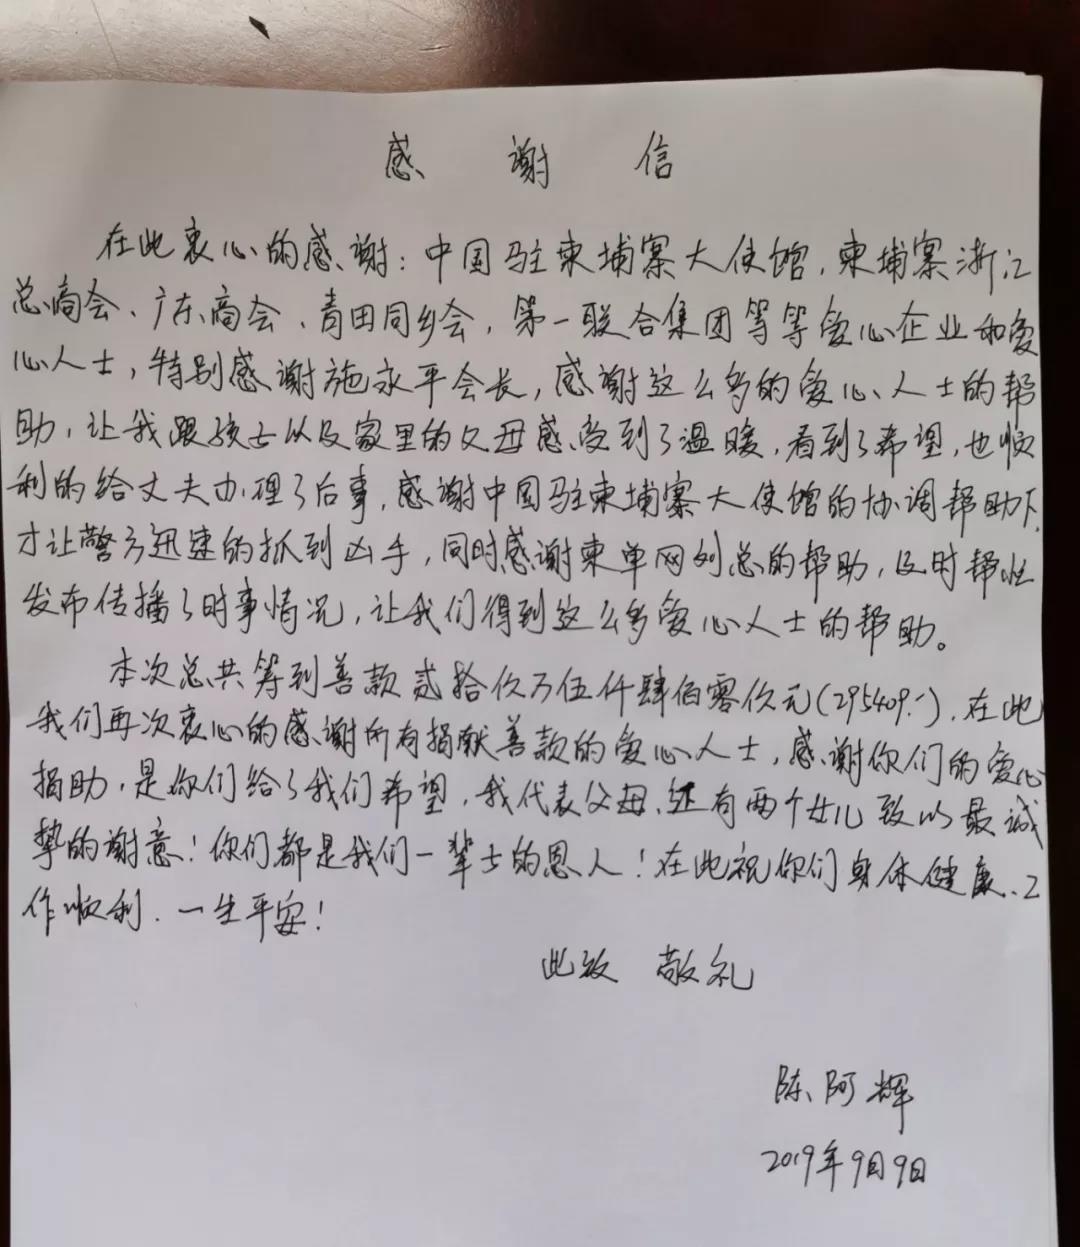 感谢信
在此衷心的感谢：中国驻柬埔寨大使馆，柬埔寨浙江
总商会、广东商会、青田同乡会，第一联合集团等等爱心企业和爱
心人士，特别感谢施永平会长，感谢这么多的爱心人士的帮
助，让我跟孩士以及家里的父母感受到了温暖，看到了希望，也顺
利的给丈夫办理了后事，感谢中国驻柬埔寨大使馆的协调帮助下，
才让警方迅速的抓到凶手，同时感谢柬单网刘总的帮助，及时帮忙
发布传播了时事情况，让我们得到这么多爱心人士的帮助。
本次总共筹到善款贰拾伩万伍仟肆佰零伩元(295409.-)，在此
我们再次衷心的感谢所有捐献善款的爱心人士，感谢你们的爱心
捐助，是你们给了我们希望，我代表父母、还有两个女儿致以最诚
挚的谢意！你们都是我们一辈士的恩人！在此祝你们身体健康、工
作顺利、一生平安！
此致 敬礼
陈阿辉
2019年9月9日